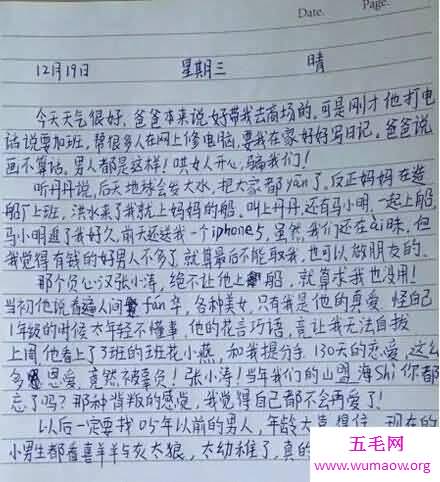 Date.    Page.
12月19日    星期三    晴
今天天气很好,爸爸本来说好带我去商场的,可是刚才他打电
话说要加班,帮很多人在网上修电脑,要我在家好好写日记。爸爸说
画不算话,男人都是这样!哄女人开心,骗我们!
听丹丹说,后天地球会发大水,把大家都yān了,反正妈妈在造
船厂上班,洪水来了我就上妈妈的船,叫上丹丹,还有马小明,一起上船,
马小明追了我好久,前天还送我一个iphone5,虽然我们还在ai昧,但
我觉得有钱的好男人不多了,就算最后不能取我,也可以做朋友的。
那个负心汉张小涛,绝不让他上船,就算求我也没用!
当初他说看遍人间fán华,各种美女,只有我是他的真爱,怪自己
1年级的时候太年轻不懂事,他的花言巧语,竟让我无法自拔
上周他看上了3班的班花小燕,和我提分手,130天的恋爱,这么
多恩爱,竟然被辜负!张小涛!当年我们的山盟海Shì你都
忘了吗?那种背叛的感觉,我觉得自己都不会再爱了!
以后一定要找05年以前的男人,年龄大靠得住,现在的
小男生都看喜羊羊与灰太狼,太幼稚了,真的
五毛网
www.wumaow.org